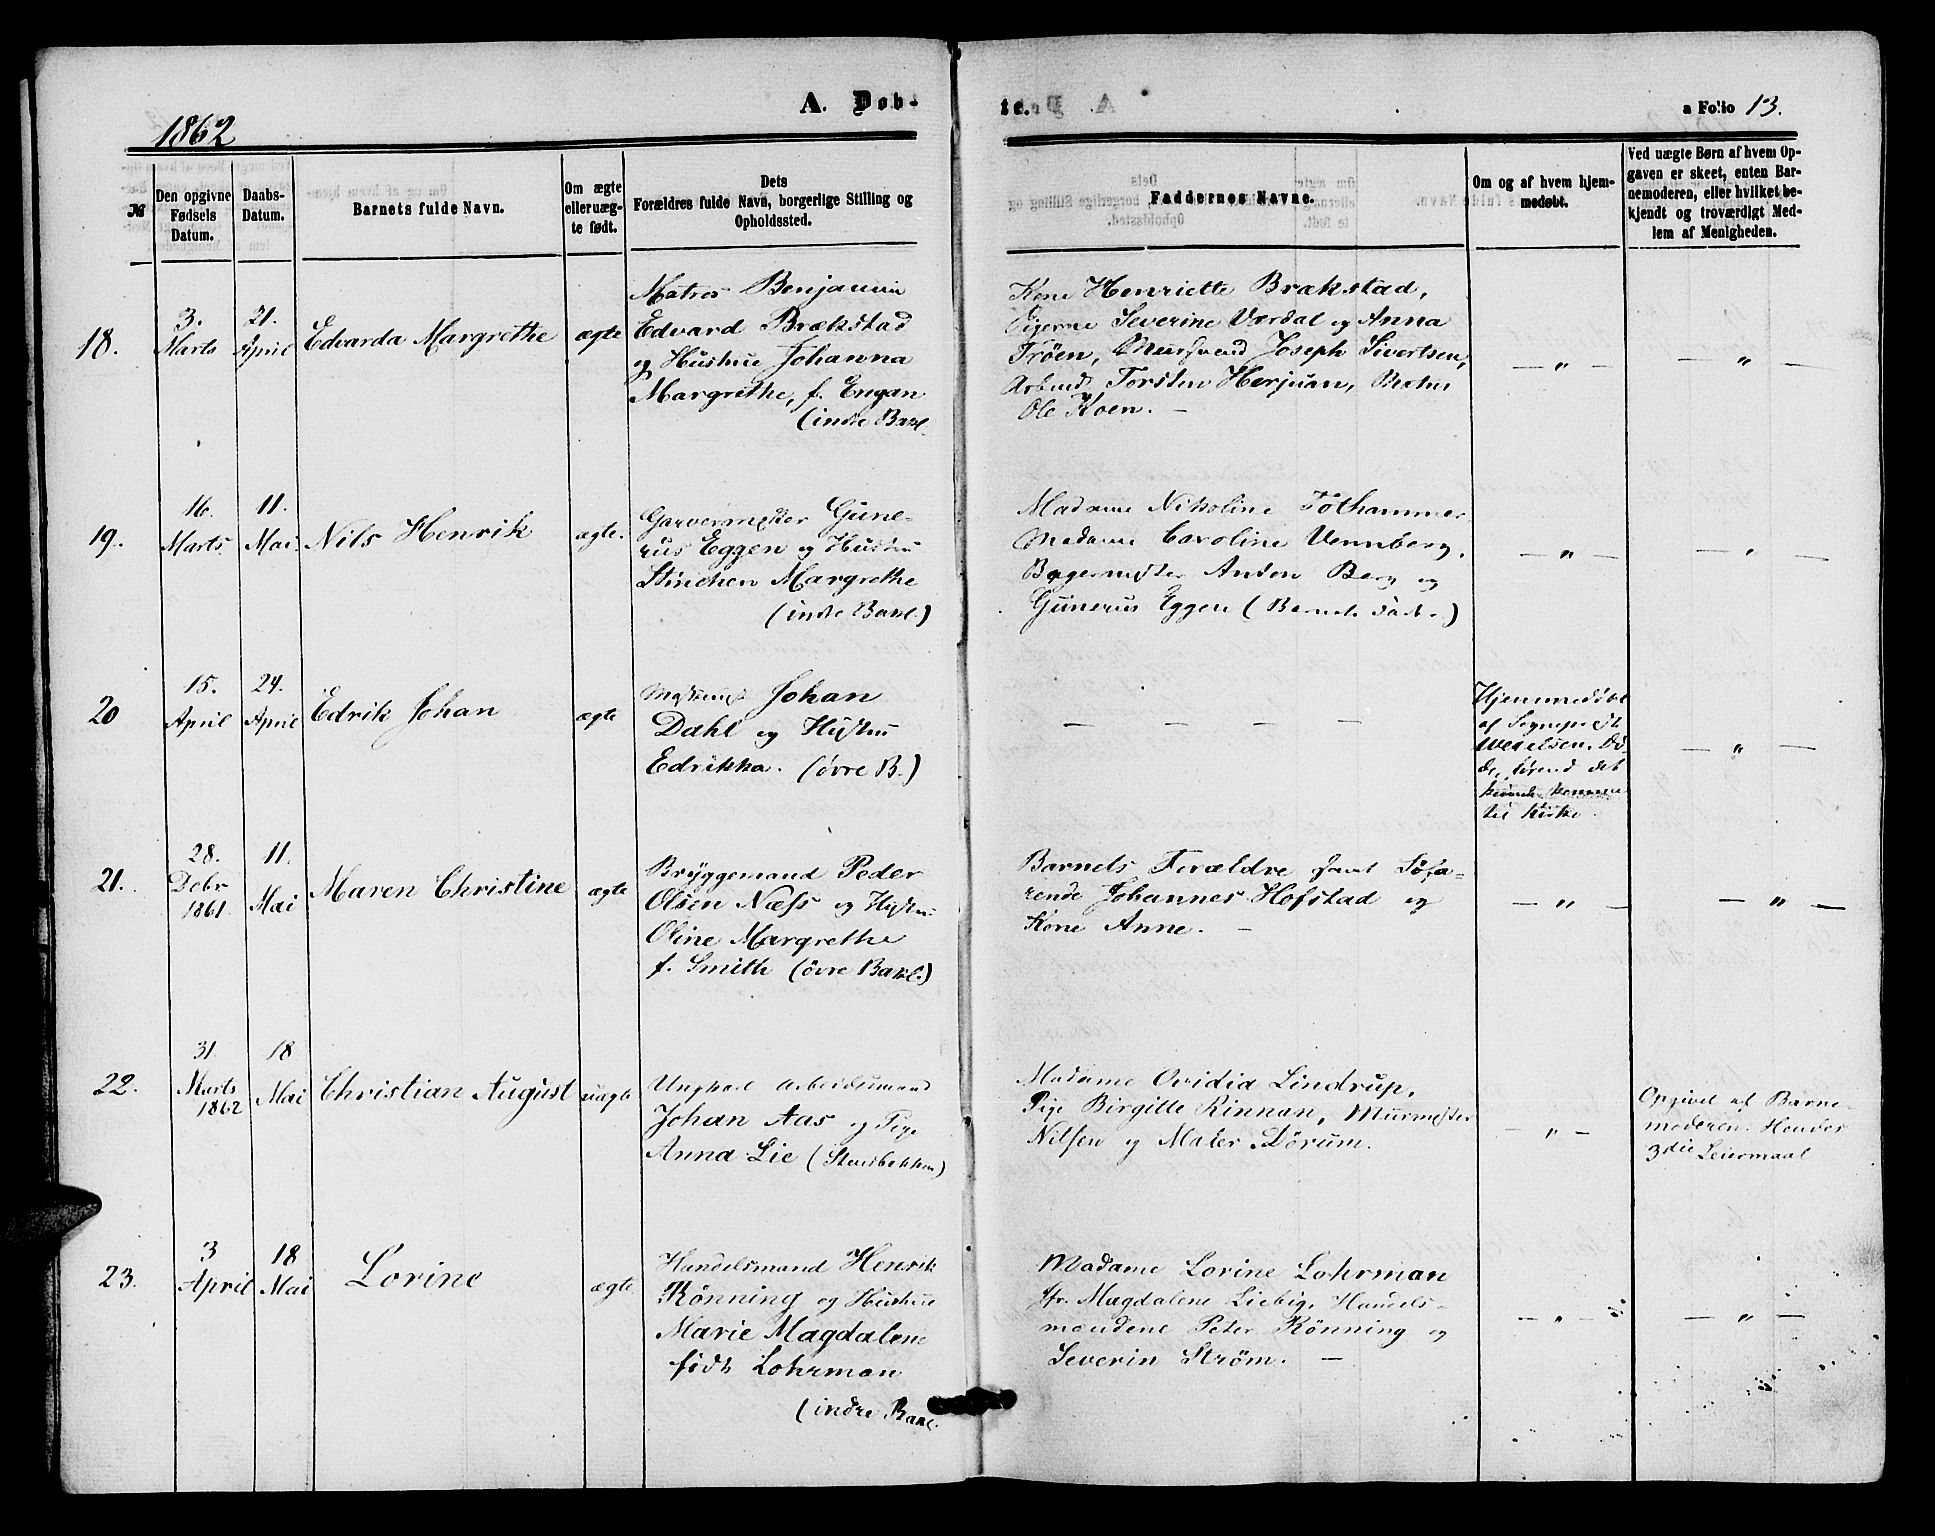 1862
A. Døb-
te.
a Folio 13.
№
Den opgivne Fødsels Datum.
Daabs-Datum.
Barnets fulde Navn.
Om ægte eller uæg-te født.
Dets
Forældres fulde Navn, borgerlige Stilling og Opholdssted.
Faddernes Navne.
Om og af hvem hjem-medøbt.
Ved uægte Børn af hvem Op-
gaven er skeet, enten Bar-
nemoderen, eller hvilket be-
kjendt og troværdigt Med-
lem af Menigheden.
18.
3. Marts
21. April
Edvarda Margrethe
ægte
Matros Benjamin
Edvard Brækstad
og Hustrue Johanna
Margrethe, f. Engan
(indre Bakl.
Kone Henriette Brakstad,
Pigerne Severine Værdal og Anna
Trøen, Muursvend Joseph Sivertsen,
Arbmd. Torsten Herjuan,
Ole Koen. —
— „ —
— „ —
19.
16. Marts
11. Mai
Nils Henrik
ægte.
Garvermester Gune-
rus Eggen og Hustru
Stinchen Margrethe
(indre Bakl.)
Madame Nikoline Tøthammer
Madame Caroline Vennberg,
Bagermester Anton Berg og
Gunerus Eggen (Barnets Fader)
— „ —
— „ —
20
15. April
24. April
Edrik Johan
ægte
Johan
Dahl og Hustru
Edrikka. (øvre B.)
— — — —
Hjemmedøbt
af Sognepræst
Wexelsen. Dø-
de, førend det
kunde komme
til Kirke.
— „ —
21.
28. Debr 1861.
11. Mai
Maren Christine
ægte
Bryggemand Peder
Olsen Næss og Hustru
Oline Margrethe
f. Smith (øvre Bakl.)
Barnets Forældre samt Søfa-
rende Johannes Hofstad og
Kone Anne. —
— „ —
— „ —
22.
31. Marts 1862
18 Mai
Christian August
uægte
Ungkarl Arbeidsmand
Johan Aas og Pige
Anna Lie (Steenbekken)
Madame Ovidia Lindrup,
Pige Birgitte Rinnan, Murmester
Nilsen og Maler Dørum.
— „ —
Opgivet af Barne-
moderen. Hendes
3die Leiermaal
23.
3 April
18 Mai
Lorine
ægte
Handelsmand Henrik
Rönning og Hustrue
Marie Magdalene
født Lohrman
(indre Bakl.
Madame Lorine Lohrman
fr. Magdalene Liebig, Handels-
mændene Peter Rönning og
Severin Strøm. —
— „ —
— „ —